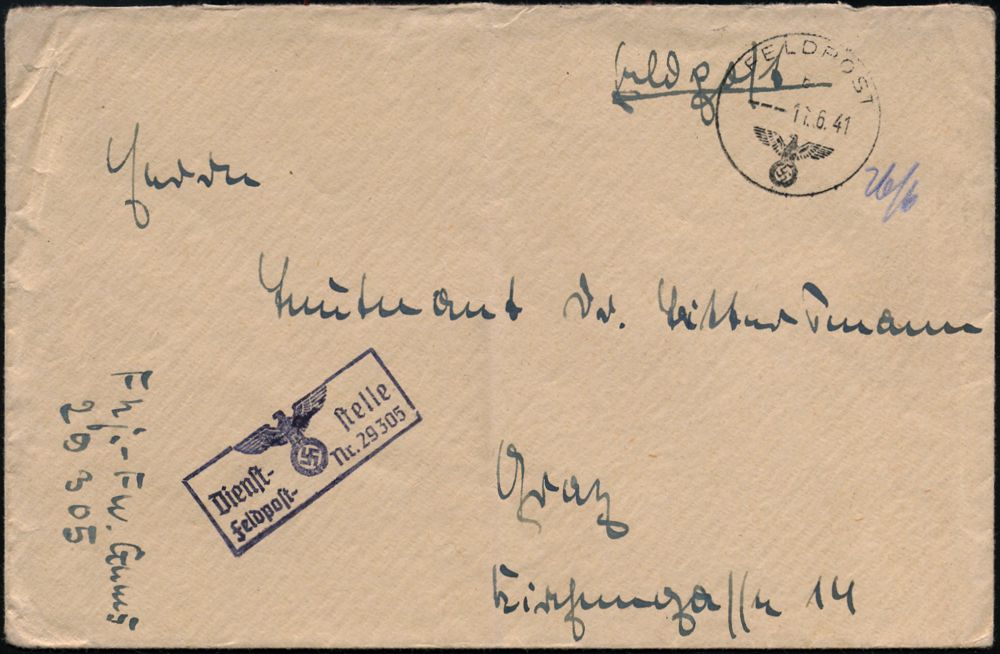 Feldpost
FELDPOST
b
--- 11.6.41
26/6
Herrn
Leutnant Dr. Mann
Dienst- stelle
Feldpost- Nr. 29305
Graz
Kirchengasse 14
Fhj.-Fw.
29305